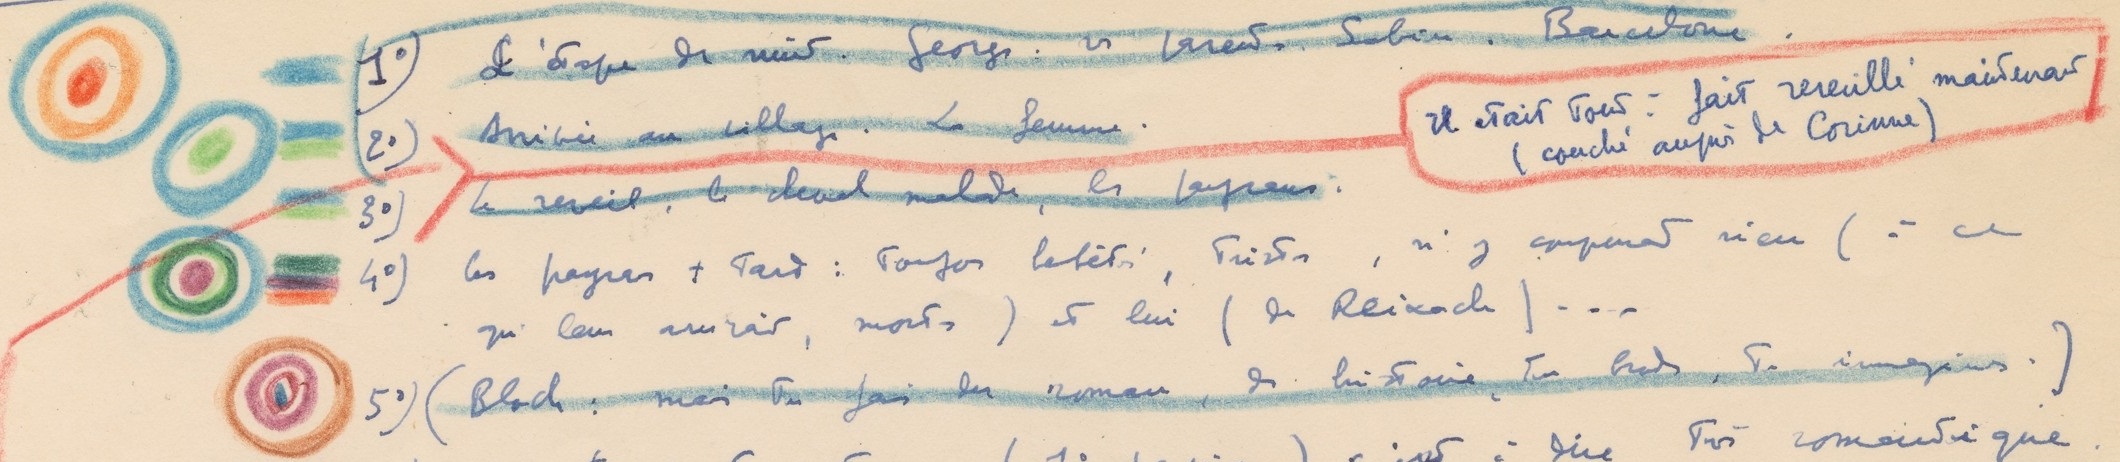 1°) L'étape de nuit. Georges. ses parents. Sabine. Barcelone.
2°) Arrivée au village. La femme.
Il était tout à fait réveillé maintenant
(couché auprès de Corinne)
3°) Le réveil, le cheval malade, les paysans.
4°) les paysans + tard : toujours hébétés, tristes, n'y comprenant rien (à ce
qui leur arrivait, morts) et lui (de Reixach) ---
5°) (Bloch : mais tu fais du roman, de l'histoire, tu brodes, tu imagines.)
à dire très romantique.